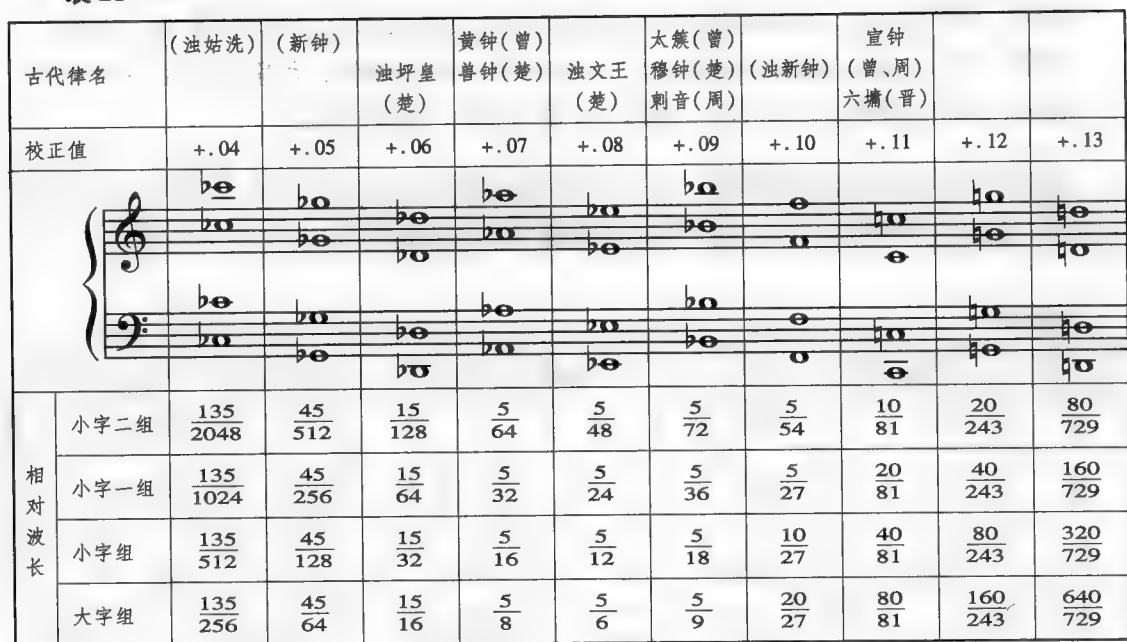 古代律名 (浊姑洗) (新钟) 浊坪皇(楚) 黄钟(曾)兽钟(楚) 浊文王(楚) 太簇(曾)穆钟(楚)刺音(周) (浊新钟) 宣钟(曾、周)六墉(晋)
校正值 +.04 +.05 +.06 +.07 +.08 +.09 +.10 +.11 +.12 +.13
相对波长
小字二组 135/2048 45/512 15/128 5/64 5/48 5/72 5/54 10/81 20/243 80/729
小字一组 135/1024 45/256 15/64 5/32 5/24 5/36 5/27 20/81 40/243 160/729
小字组 135/512 45/128 15/32 5/16 5/12 5/18 10/27 40/81 80/243 320/729
大字组 135/256 45/64 15/16 5/8 5/6 5/9 20/27 80/81 160/243 640/729